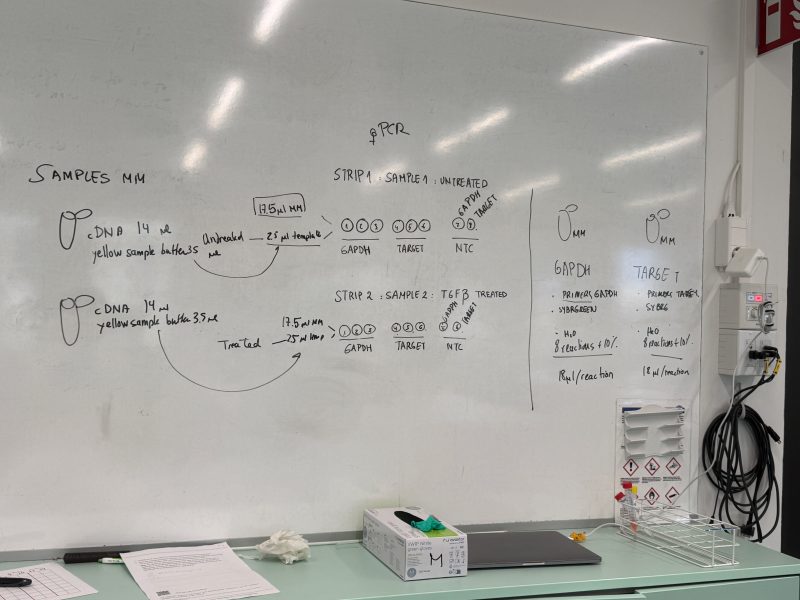 qPCR
SAMPLES MM
cDNA 14 µl
yellow sample buffer 35 µl
Untreated
17.5 µl MM
25 µl template
STRIP 1 : SAMPLE 1 : UNTREATED
1 2 3 4 5 6 7 8
GAPDH TARGET
GAPDH TARGET NTC
cDNA 14 µl
yellow sample buffer 3.5 µl
Treated
17.5 µl MM
STRIP 2 : SAMPLE 2 : TGFβ TREATED
1 2 3 4 5 6
GAPDH TARGET
GAPDH TARGET NTC
MM
GAPDH
· PRIMERS GAPDH
· SYBRGREEN
· H2O
8 reactions + 10%
18 µl/reaction
MM
TARGET
· PRIMERS TARGET
· SYBRG
· H2O
8 reactions + 10%
18 µl/reaction
M